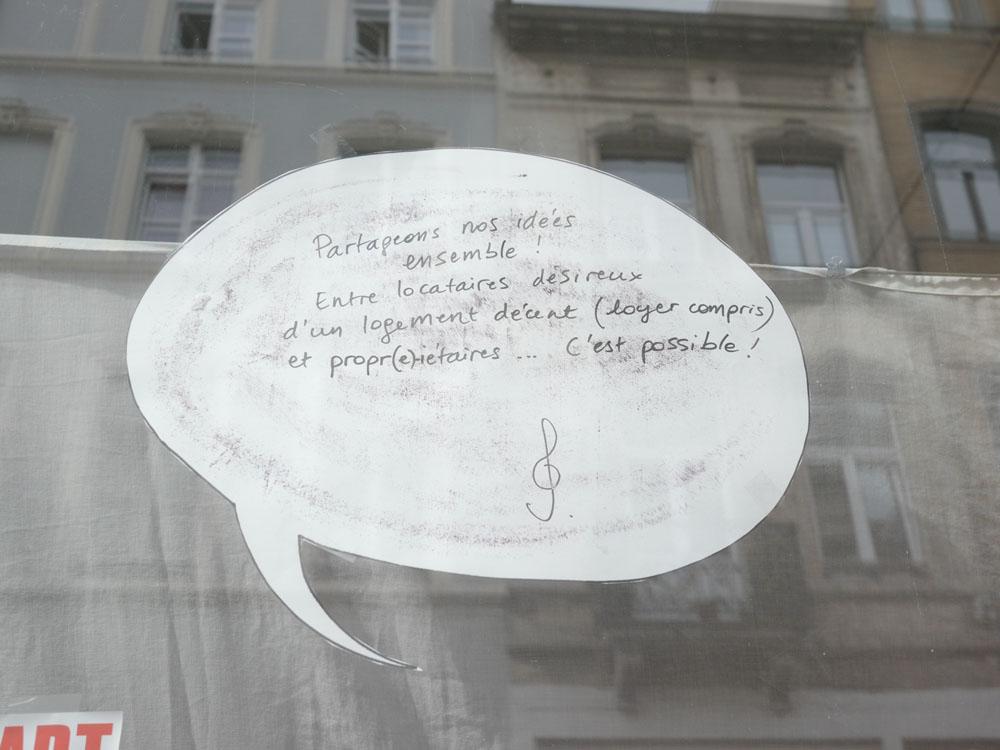 Partageons nos idées
ensemble !
Entre locataires désireux
d'un logement décent (loyer compris)
et propr(e)iétaires ... C'est possible !
ART